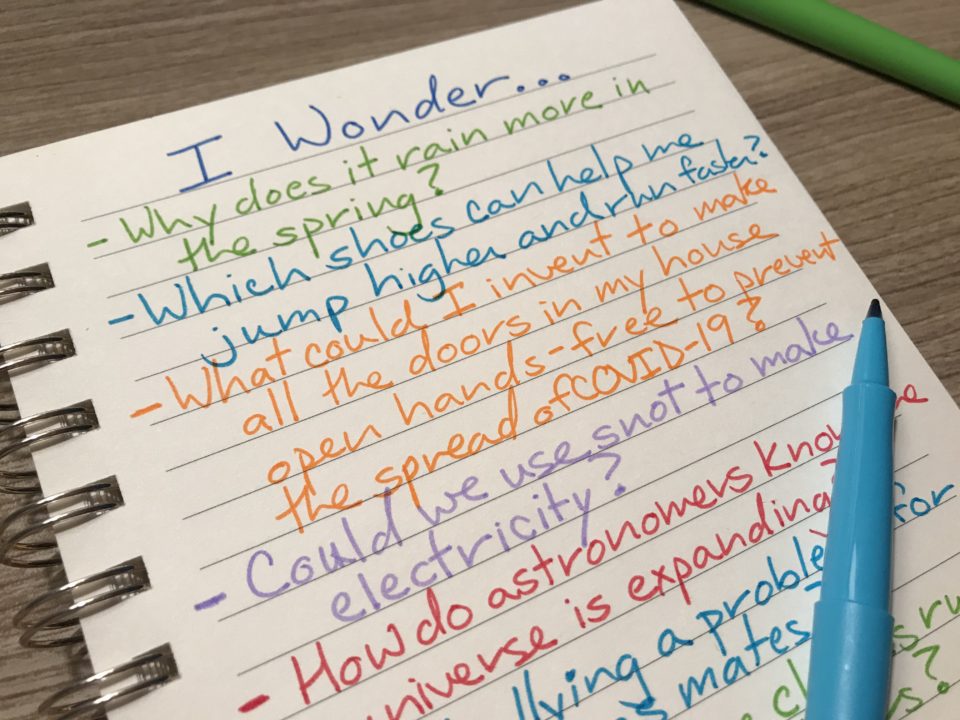 I Wonder...
- Why does it rain more in
the spring?
- Which shoes can help me
jump higher and run faster?
- What could I invent to make
all the doors in my house
open hands-free to prevent
the spread of COVID-19?
- Could we use snot to make
electricity?
- How do astronomers know
universe is expanding
a for